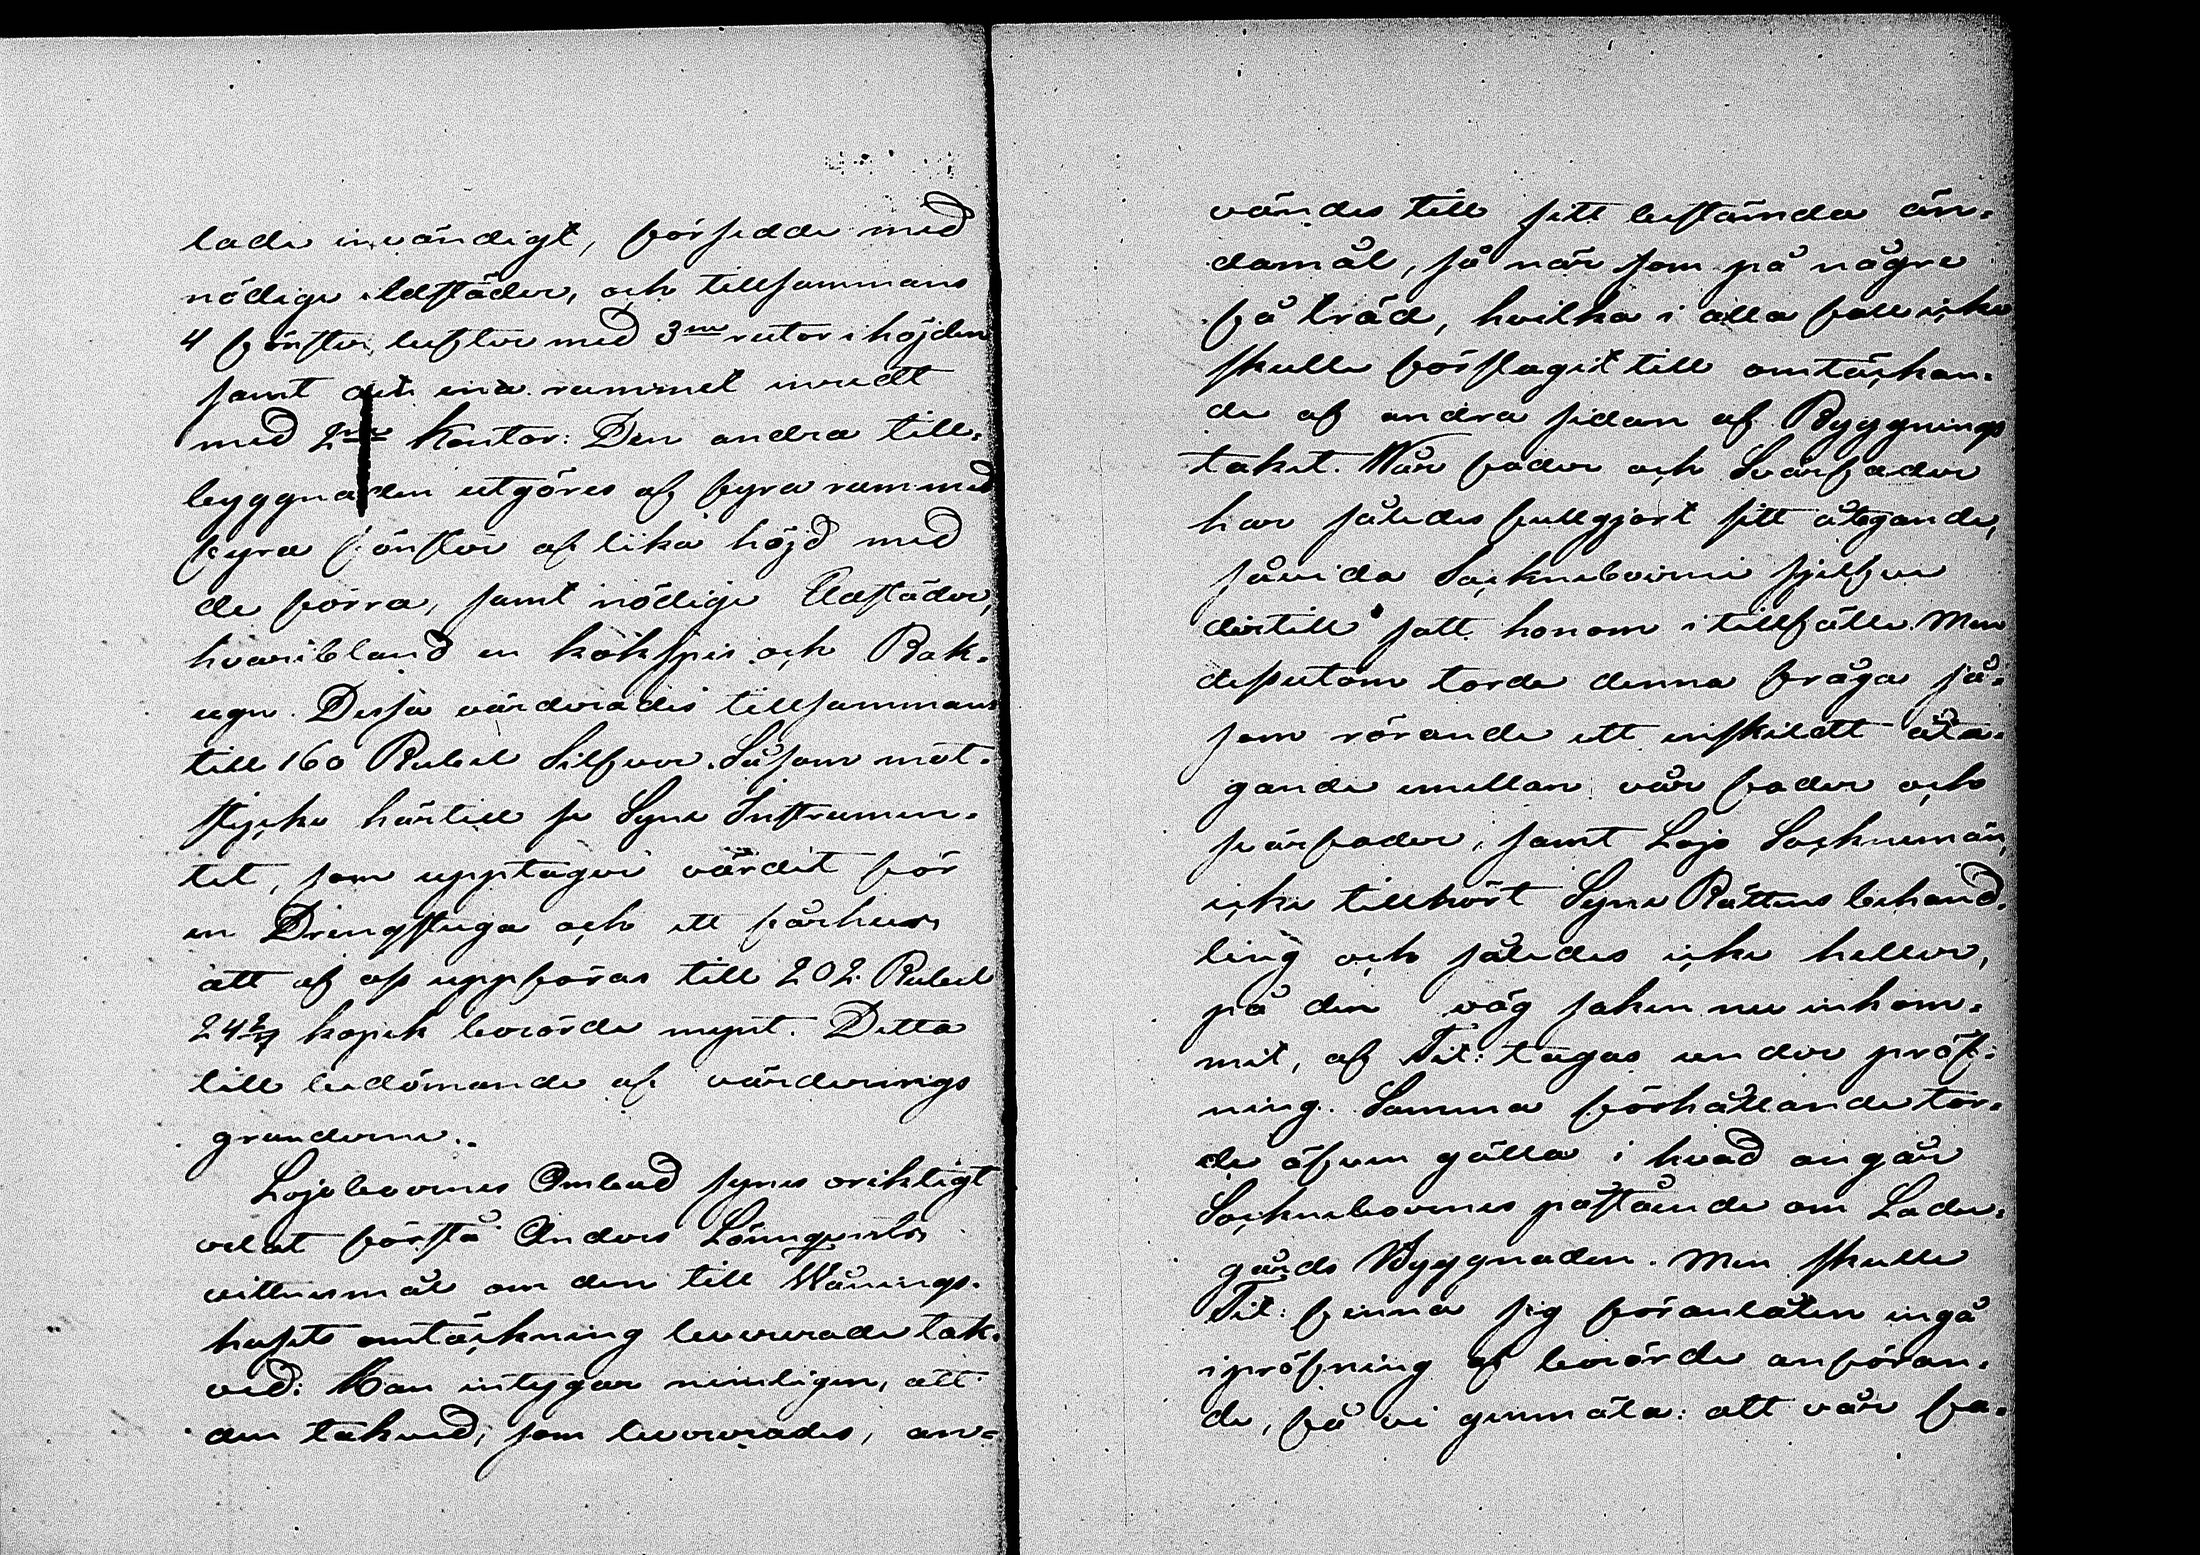 lade invändigt, försedde med
nödige eldstäder, och tillsammans
4 fönster lufter med 3ne rutor i höjden
samt det ena rummet inredt
med 2ne Kontor: Den andra till-
byggnaden utgöres af fyra rum med
fyra fönster af lika höjd med
de förra, samt nödige Eldstäder,
hvaribland en kökspis och Bak-
ugn. Dessa värderades tillsammans
till 160 Rubel Silfver. Såsom mot-
stycke härtill se Syne Instrumen-
tet, som upptager värdet för
en Drengstuga och ett fårhus
att af oss uppföras till 202 Rubel
24 2/7 kopek berörde mynt. Detta
till bedömande af värderings
grunderne.
Lojoboernes Ombud synes oriktigt
velat förstå Anders Lönnqvists
vittnesmål om den till Wånings-
huset omtäckning levererade tak-
ved: Han intygar nemligen, att
den takved, som levererades, an-
vändes till sitt bestämda än-
damål, så när som på någre
få träd, hvilka i alla fall icke
skulle förslagit till omtäckan-
de af andra sidan af Byggnings
taket. Wår fader och Svärfader
har således fullgjort sitt åtagande,
såvida Sockneboerne sjelfve
dertill satt honom i tillfälle. Men
dessutom torde denna fråga så-
som rörande ett enskildt åta-
gande emellan vår fader och
svärfader, samt Lojo Sockenmän,
icke tillhört Syne Rättens behand-
ling och således icke heller,
på den väg saken nu inkom-
mit, af Tit: tagas under pröf-
ning. Samma förhållande tor-
de äfven gälla i hvad angår
Sockneboernes påstående om Ladu-
gårds Byggnaden. Men skulle
Tit: finna sig föranlåten ingå
i pröfning af berörde anföran-
de, få vi genmäla: att vår fa-